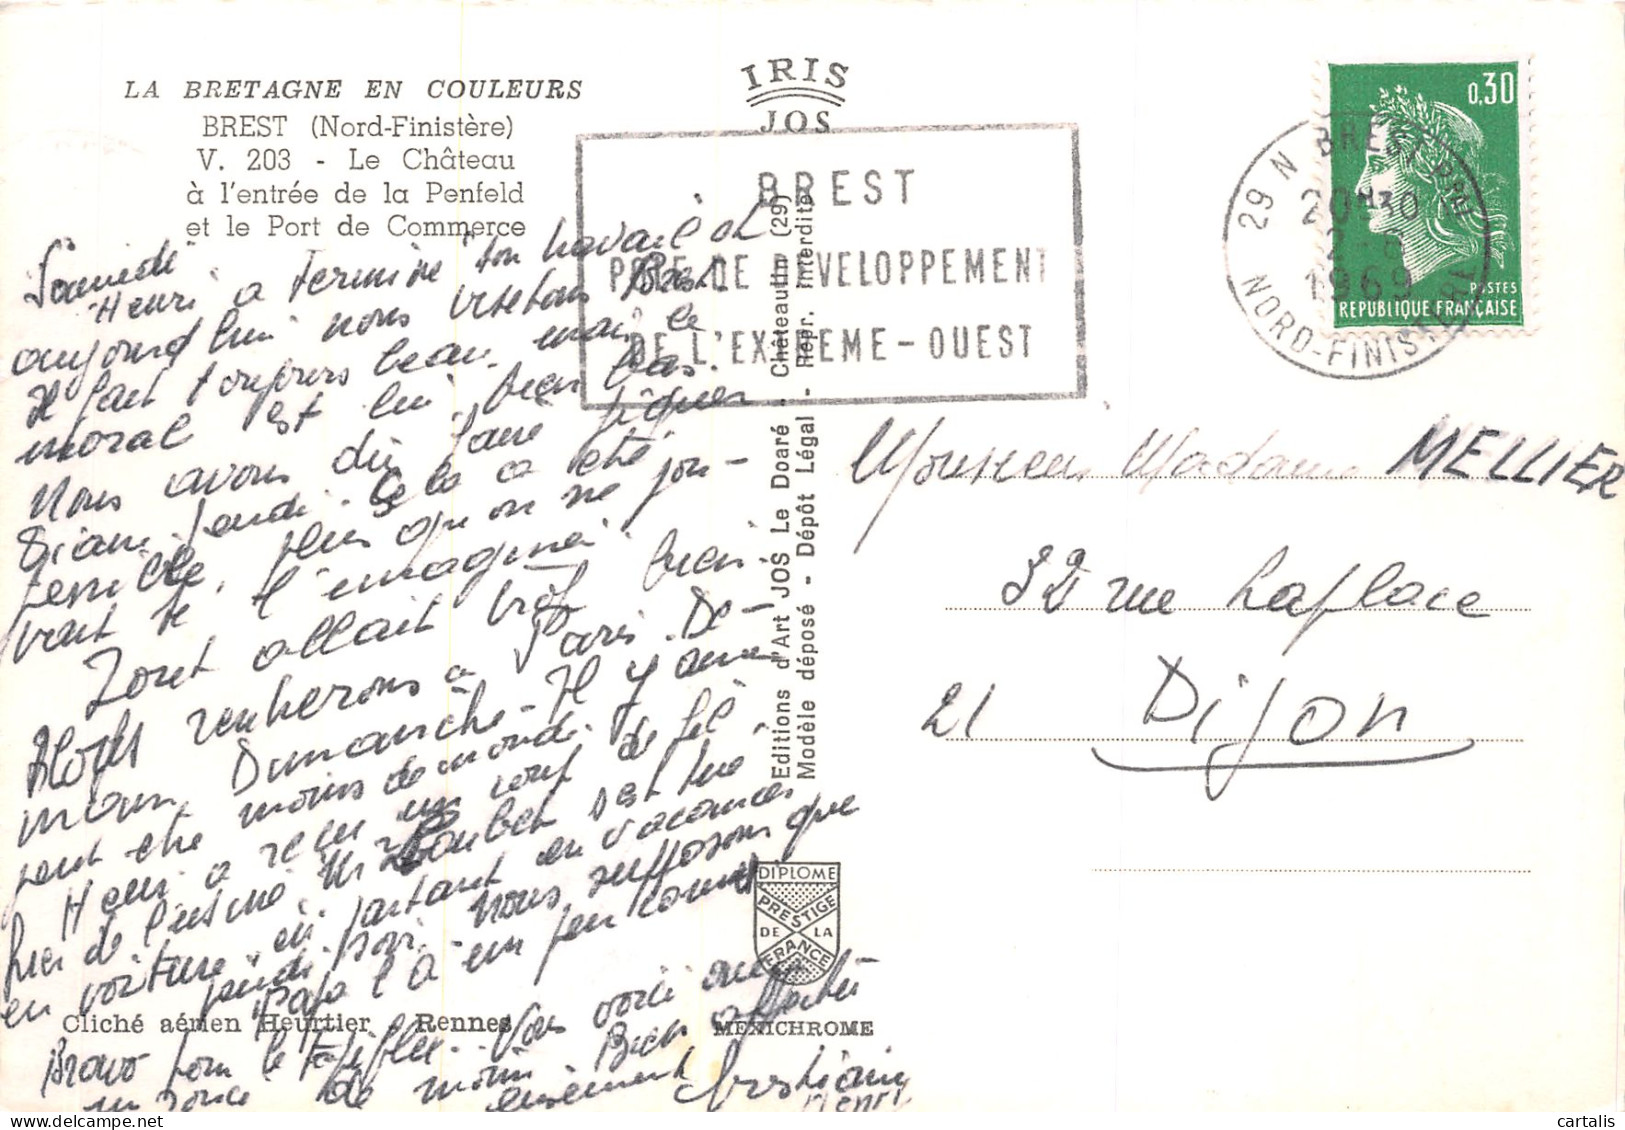 LA BRETAGNE EN COULEURS
BREST (Nord-Finistère)
V. 203 - Le Château
à l'entrée de la Penfeld
et le Port de Commerce
IRIS
JOS
BREST
POLE DE DEVELOPPEMENT
DE L'EXTREME-OUEST
0,30
POSTES
REPUBLIQUE FRANÇAISE
29 N BREST PPAL
20H30
2-8
1969
NORD-FINISTERE
Samedi
Henri a terminé son travail et
aujourd'hui nous visitons Brest.
Il fait toujours beau, mais le
moral est lui bien bas.
Nous avons dû faire piquer
Diane jeudi. Cela a été
terrible, plus qu'on ne pou-
vait se l'imaginer.
Tout allait trop bien.
Alors rentrerons à Paris De-
main, Dimanche. Il y aura
peut être moins de monde.
Henri a reçu un coup de fil
hier de l'usine. Mr Loubet s'est tué
en voiture, en partant en vacances
jeudi soir. Nous supposons que
Papa l'a un peu connu
Bravo pour le Vous voici avec
un souci de moins Bien affectu-
eusement Christiane
Henri
Editions d'Art JOS Le Doaré - Châteaulin (29)
Modèle déposé - Dépôt Légal - Repr. interdite
Monsieur Madame MELLIER
32 rue Laplace
21 Dijon
DIPLOME
PRESTIGE
DE LA
FRANCE
Cliché aérien Heurtier - Rennes
MEXICHROME
cartalis